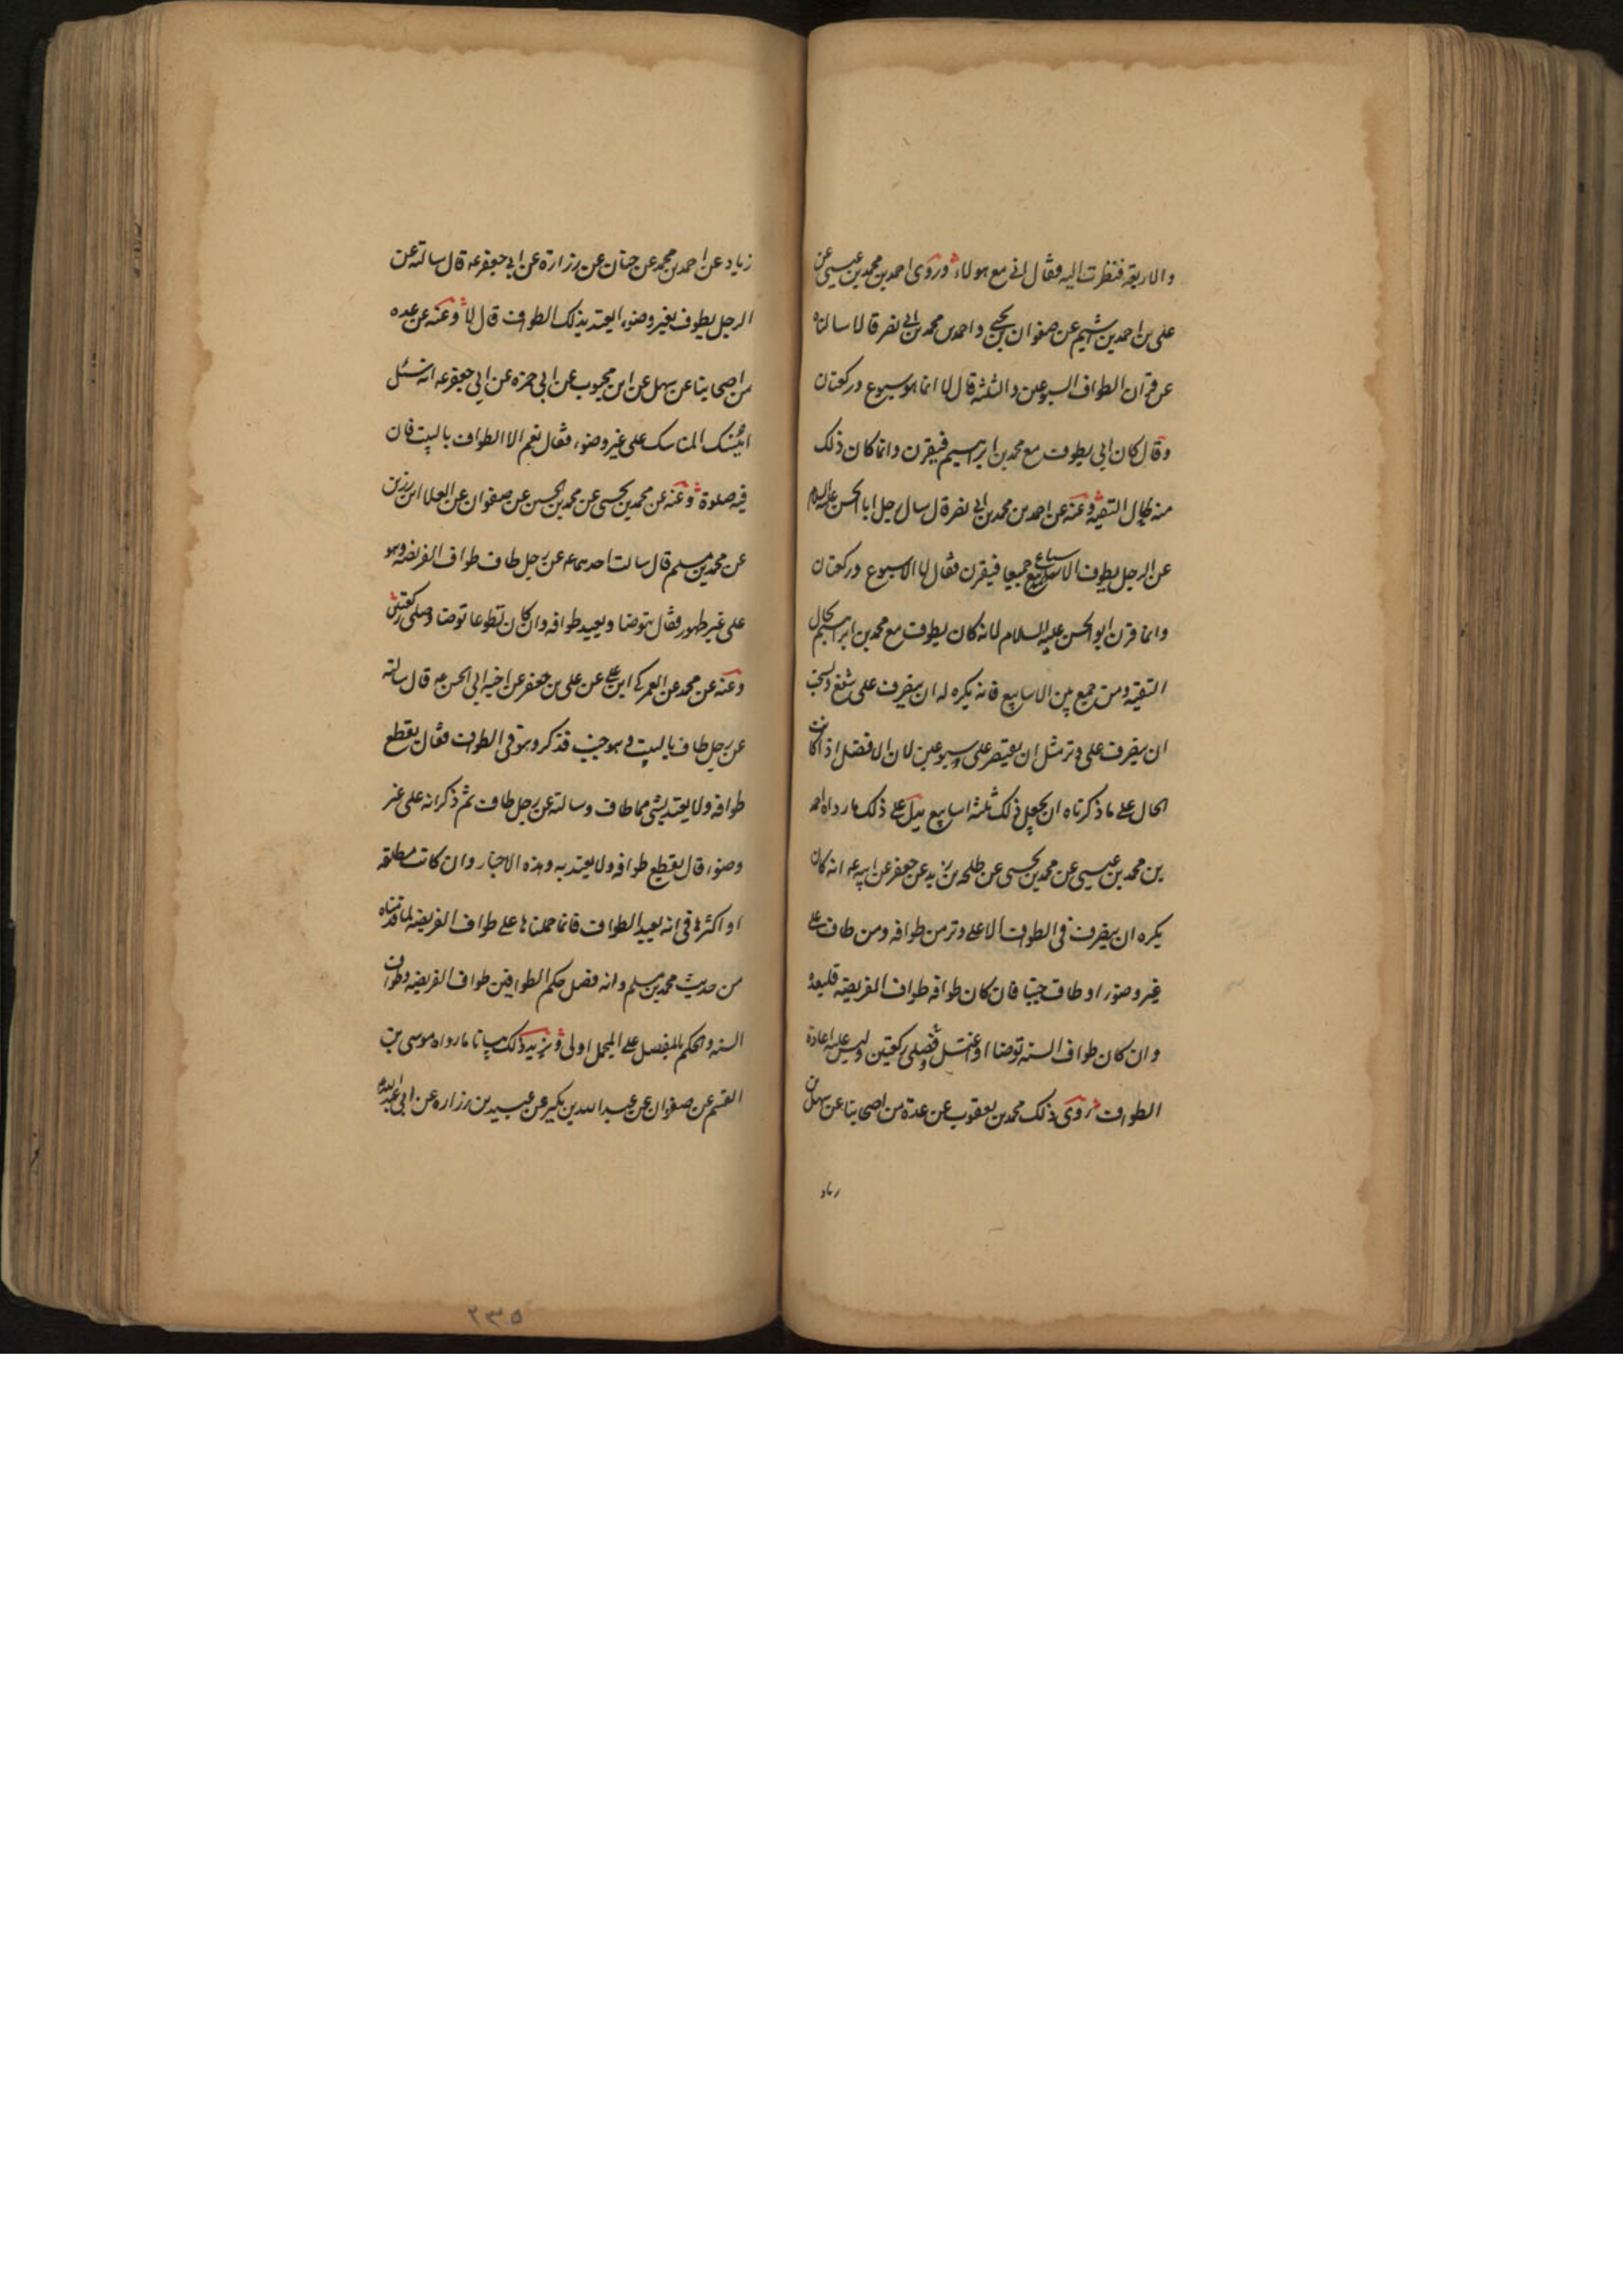 والاربعة فنظرت اليه فقال اني مع هولاء وروى احمد بن محمد بن عيسى عن
على بن احمد بن اشيم عن صفوان بن يحيى واحمد بن محمد بن ابي نصر قالا سالناه
عن قران الطواف السبوعين والثلثة قال لا انما هو سبوع وركعتان
وقال كان ابي يطوف مع محمد بن ابرهيم فيقرن وانما كان ذلك
منه لحال التقية وعنه عن احمد بن محمد بن ابي نصر قال سال رجل ابا الحسن عليه السلام
عن الرجل يطوف الاسابيع جميعا فيقرن فقال لا الاسبوع وركعتان
وانما قرن ابو الحسن عليه السلام لانه كان يطوف مع محمد بن ابرهيم لحال
التقية ومن جمع بين الاسابيع فانه يكره له ان ينصرف على شفع ويستحب
ان ينصرف على وتر مثل ان يقتصر على سبوعين لان الافضل اذا كانت
الحال على ما ذكرناه ان يجعل ذلك ثلثة اسابيع يدل على ذلك ما رواه احمد
بن محمد بن عيسى عن محمد بن يحيى عن طلحة بن زيد عن جعفر عن ابيه عه انه كان
يكره ان ينصرف في الطواف الا على وتر من طوافه ومن طاف على
غير وضوء او طاف جنبا فان كان طوافه طواف الفريضة فليعده
وان كان طواف السنة توضا او اغتسل فصلى ركعتين وليس عليه اعادة
الطواف روى ذلك محمد بن يعقوب عن عدة من اصحابنا عن سهل بن
زياد
زياد عن احمد بن محمد عن حنان عن زرارة عن ابي جعفر عه قال سالته عن
الرجل يطوف بغير وضوء ايعتد بذلك الطواف قال لا وعنه عن عده
من اصحابنا عن سهل عن ابن محبوب عن ابي حمزه عن ابي جعفر عه انه سئل
اينسك المناسك على غير وضوء فقال نعم الا الطواف بالبيت فان
فيه صلوة وعنه عن محمد بن يحيى عن محمد بن الحسين عن صفوان عن العلا ابن رزين
عن محمد بن مسلم قال سالت احدهما عه عن رجل طاف طواف الفريضه وهو
على غير طهور فقال يتوضا ويعيد طوافه وان كان تطوعا توضا وصلى ركعتين
وعنه عن محمد عن العمركي ابن علي عن على بن جعفر عن اخيه ابي الحسن عه قال سالته
عن رجل طاف بالبيت وهو جنب فذكر وهو في الطواف فقال يقطع
طوافه ولا يعتد بشي مما طاف وسالته عن رجل طاف ثم ذكر انه على غير
وضوء قال يقطع طوافه ولا يعتد به وهذه الاخبار وان كانت مطلقه
او اكثرها في انه يعيد الطواف فانما حملناها على طواف الفريضه لما قدمناه
من حديث محمد بن مسلم وانه فصل حكم الطوافين طواف الفريضه وطواف
السنه والحكم بالمفصل على المجمل اولى ويزيد ذلك بيانا ما رواه موسى بن
القسم عن صفوان عن عبد الله بن بكير عن عبيد بن زراره عن ابي عبد الله
٢٣٥